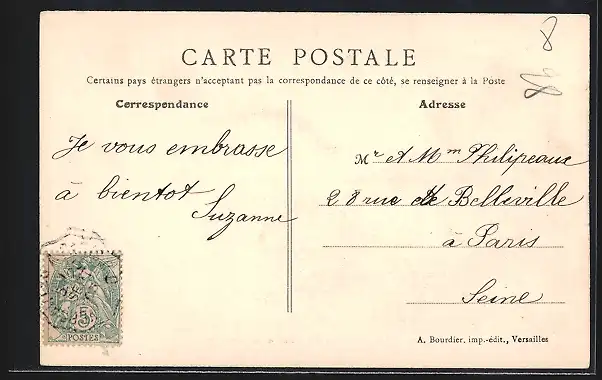 CARTE POSTALE
Certains pays étrangers n'acceptant pas la correspondance de ce côté, se renseigner à la Poste
Correspondance
Je vous embrasse
à bientot
Suzanne
Adresse
Mr et Mm Philipeaux
28 rue de Belleville
à Paris
Seine
5
POSTES
A. Bourdier, imp.-édit., Versailles